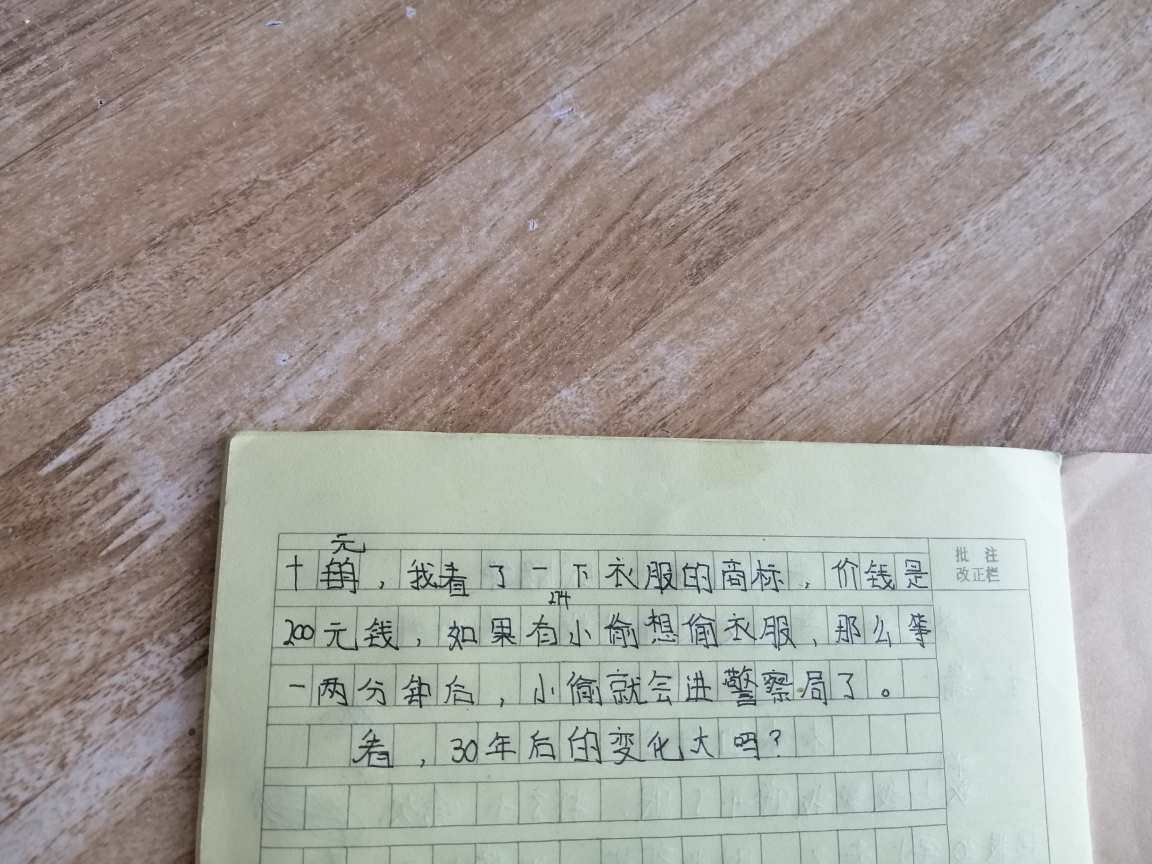 元
批 注
改正栏
十的，我看了一下衣服的商标，价钱是
274
200元钱，如果有小偷想偷衣服，那么等
一两分钟后，小偷就会进警察局了。
看，30年后的变化大吗？